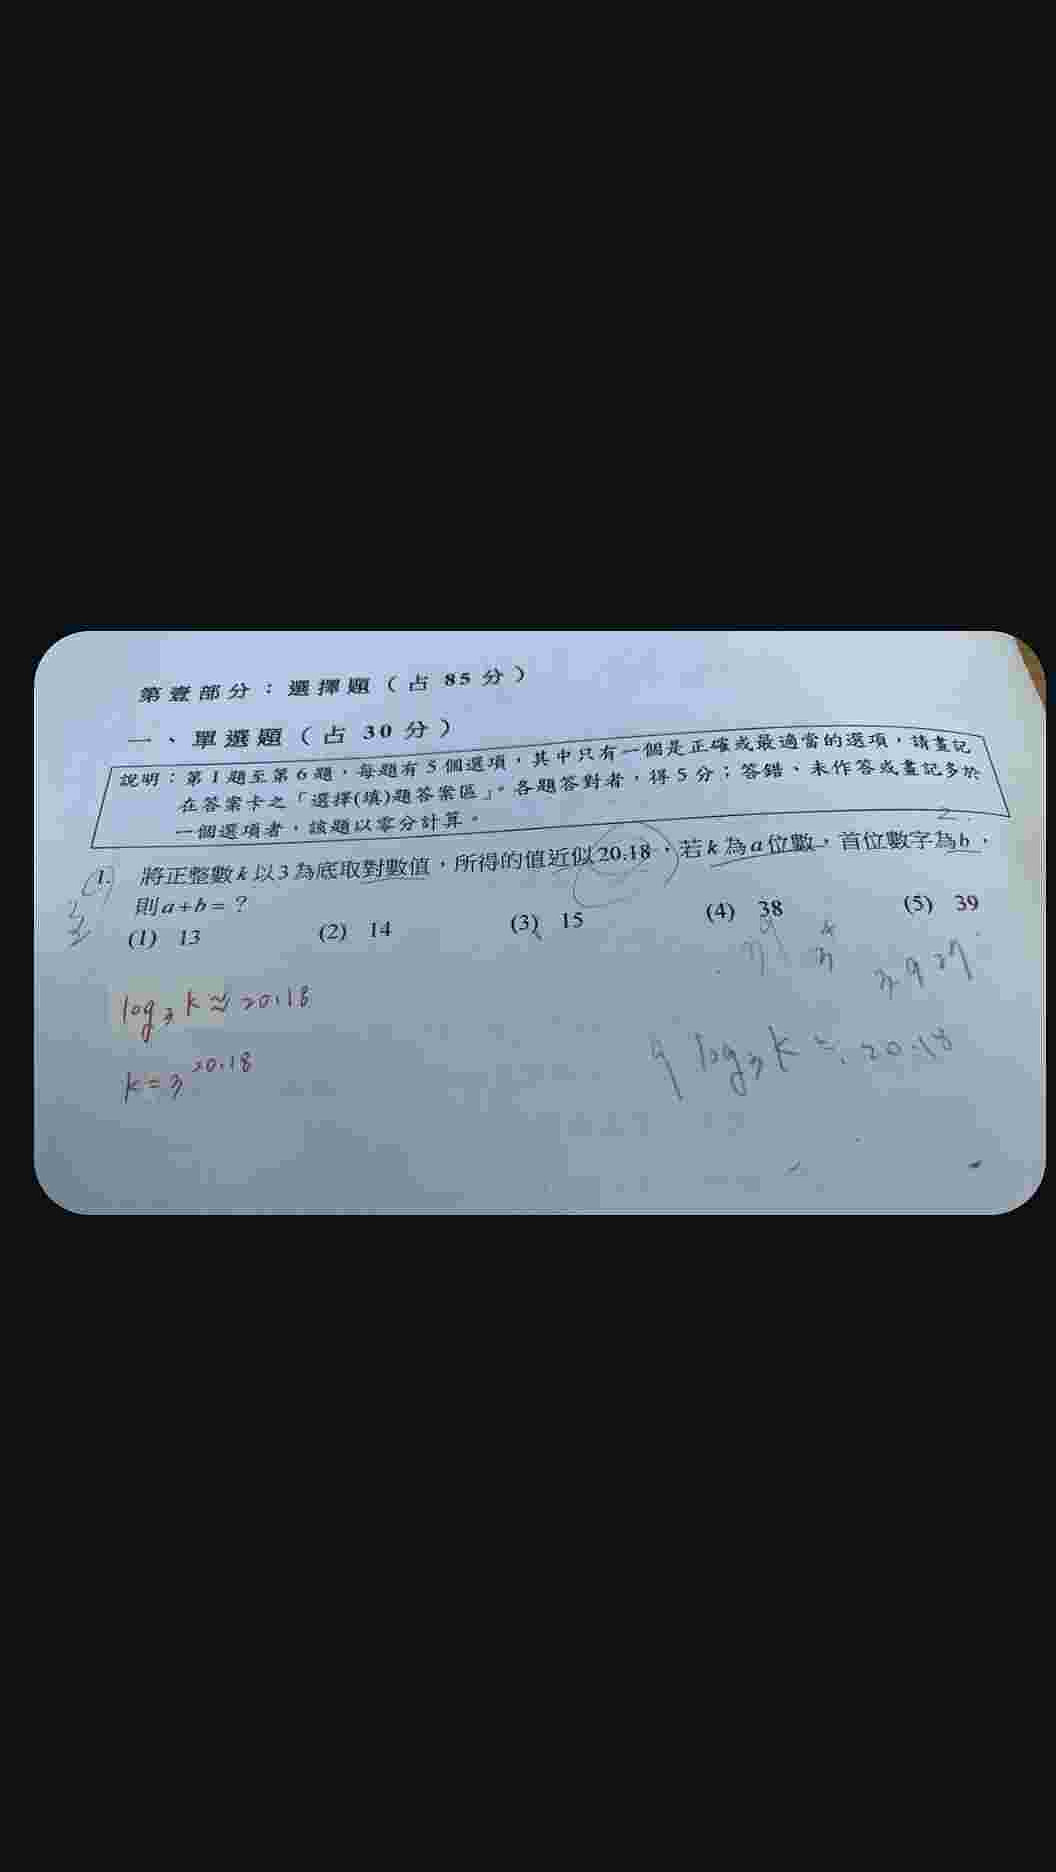 第壹部分：選擇題（占 85 分）
一、單選題（占 30 分）
說明：第 1 題至第 6 題，每題有 5 個選項，其中只有一個是正確或最適當的選項，請畫記
在答案卡之「選擇(填)題答案區」。各題答對者，得 5 分；答錯、未作答或畫記多於
一個選項者，該題以零分計算。
2.
1. 將正整數 k 以 3 為底取對數值，所得的值近似 20.18，若 k 為 a 位數，首位數字為 b，
則 a+b=？
(1) 13 (2) 14 (3) 15 (4) 38 (5) 39
3 9 27
log₃ k ≈ 20.18
log₃ k ≒ 20.18
k = 3^20.18